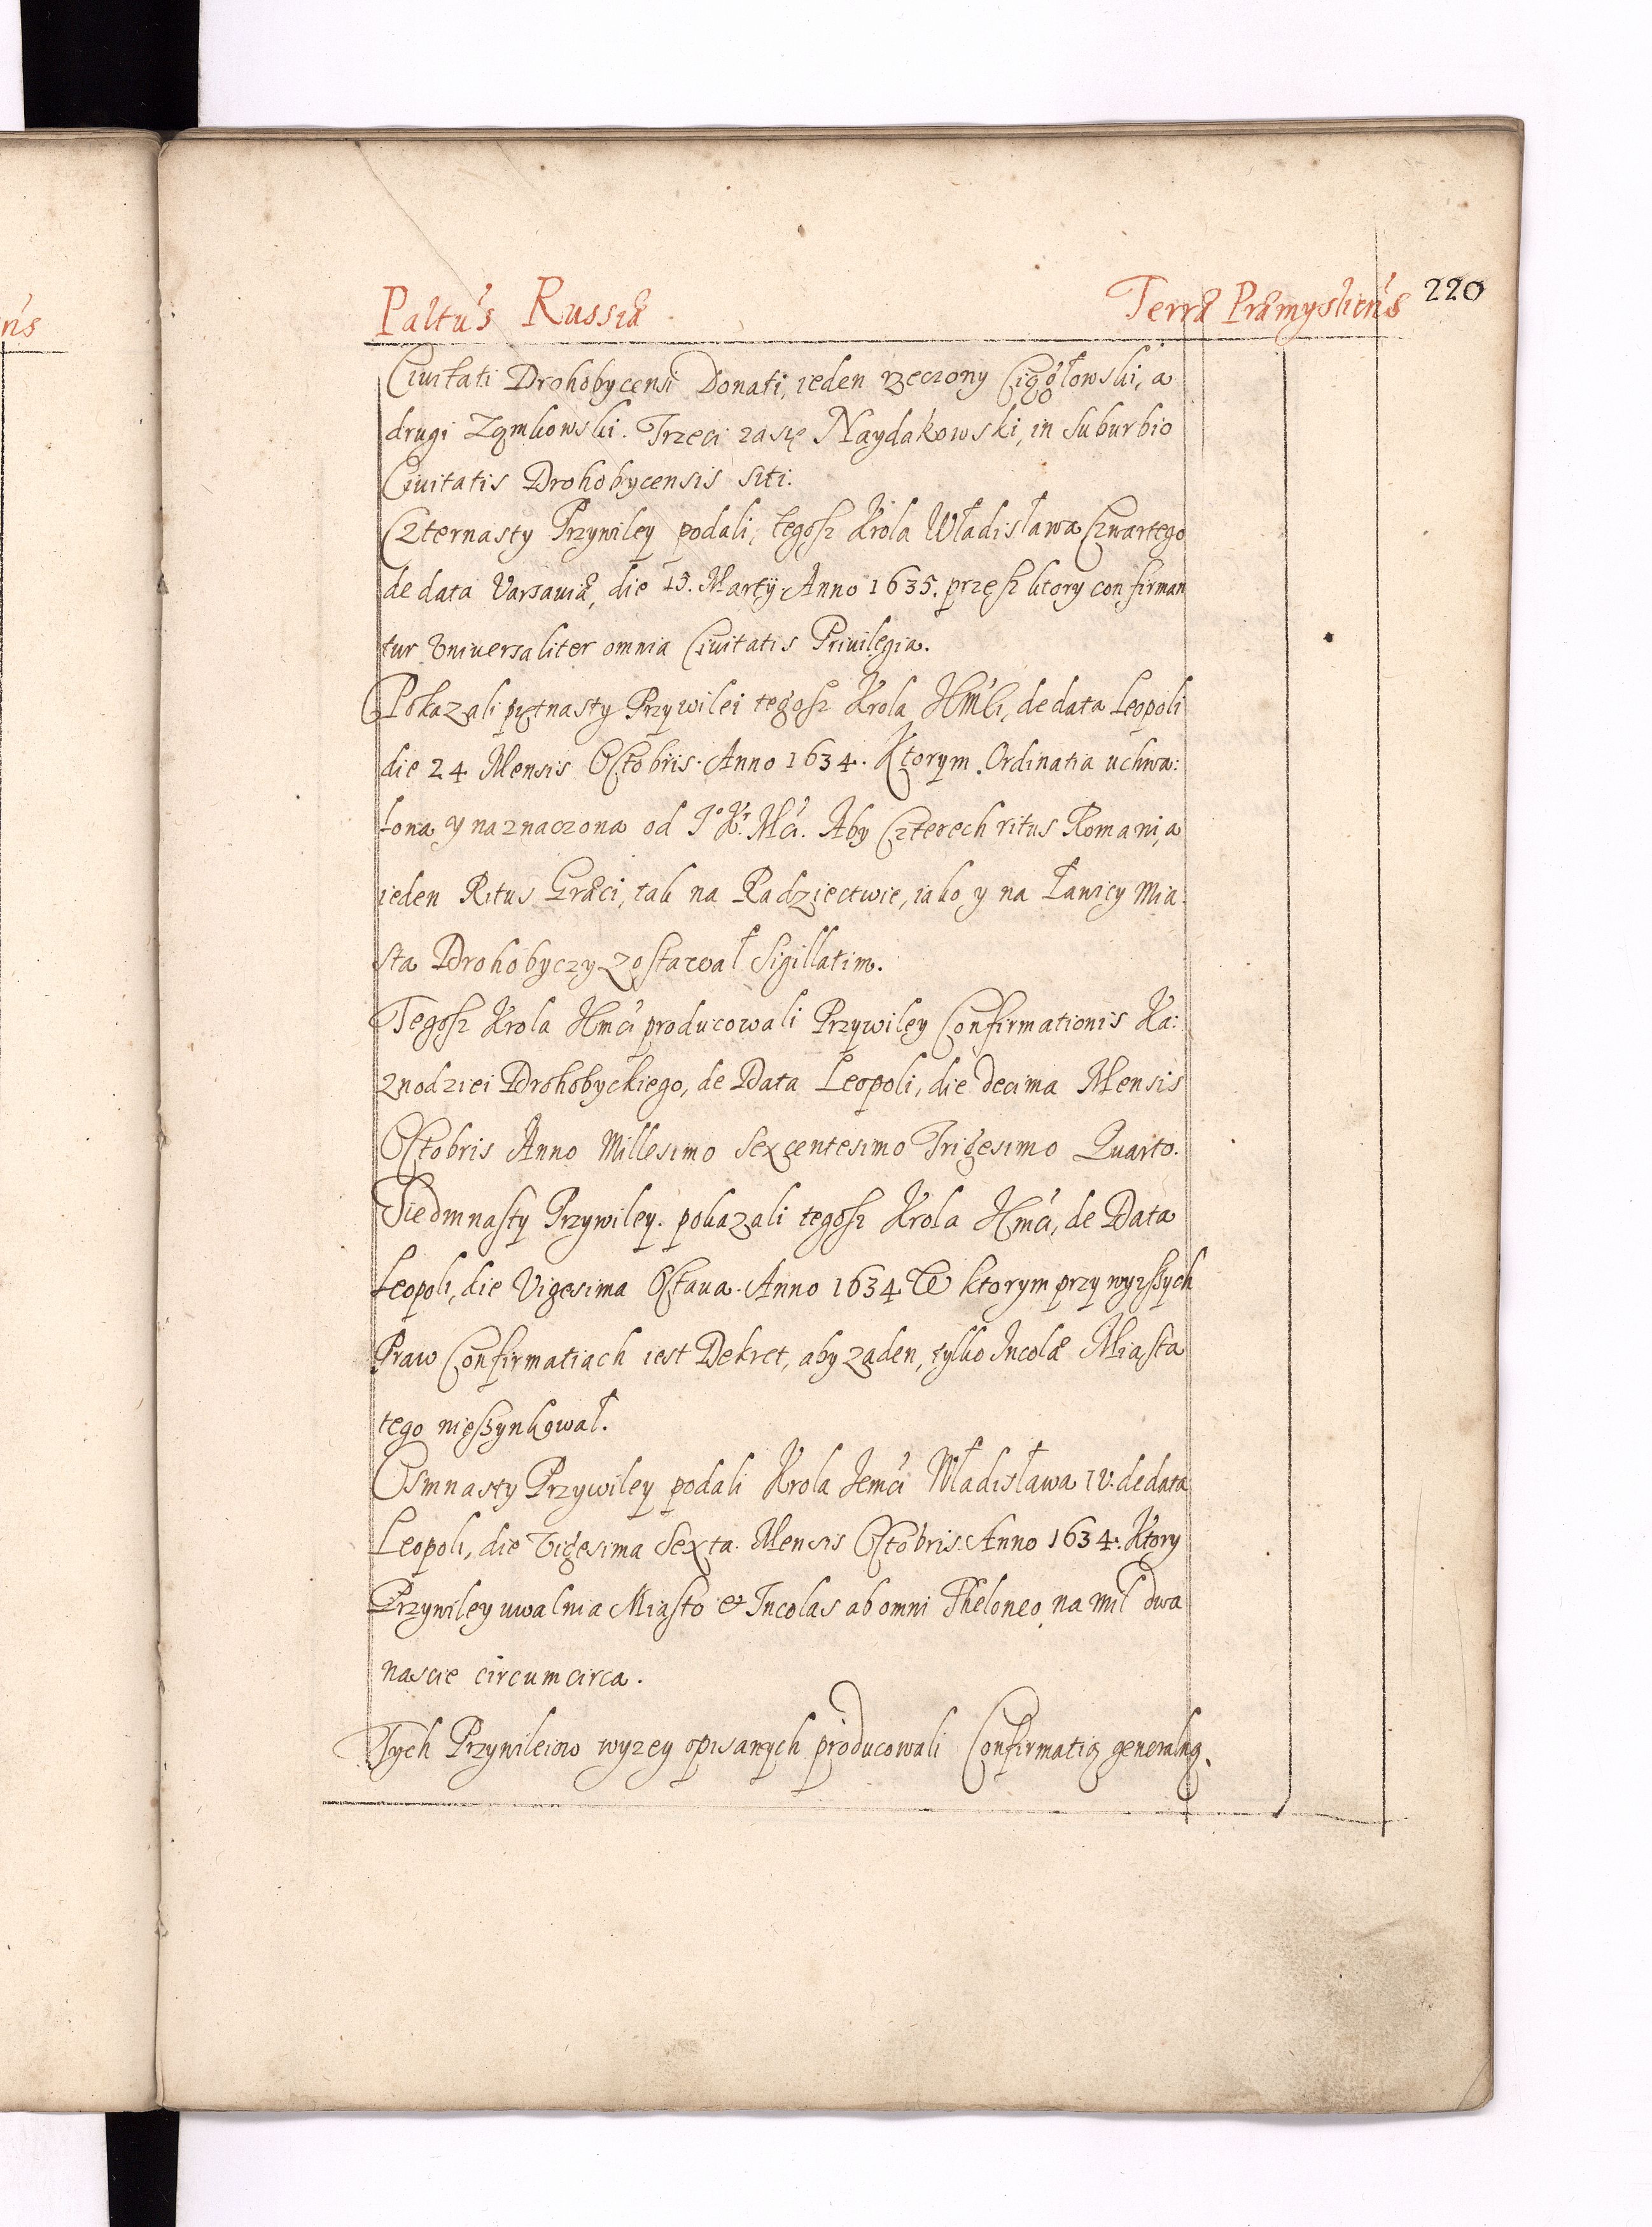 Paltus Russiæ
Terræ Præmysliens
220
Civitati Drohobycensi Donati, ieden rzeczony Cigołowski, a
drugi Ząmkowski. Trzeci zasię Naydakowski, in suburbio
Civitatis Drohobycensis siti.
Czternasty Przywiley podali, tegosz Krola Władisława Czwartego
de data Varsaviæ, die 15. Martÿ Anno 1635. przesz ktory confirman
tur Vniversaliter omnia Civitatis Privilegia.
Pokazali piętnasty Przywilei tegosz Krola JKMći, de data Leopoli
die 24 Mensis Octobris Anno 1634. Ktorym Ordinatia uchwa:
lona y naznaczona od Jº Kr. Mći. Aby Czterech ritus Romani, a
ieden Ritus Græci, tak na Radziectwie, iako y na Ławicy Mia:
sta Drohobyczy zostawał Sigillatim.
Tegosz Krola Jmći producowali Przywiley Confirmationis Ka:
znodziei Drohobyckiego, de Data Leopoli, die decima Mensis
Octobris Anno Millesimo Sexcentesimo Trigesimo Quarto.
Siedmnasty Przywiley pokazali tegosz Krola Jmći, de Data
Leopoli, die Vigesima Octava Anno 1634 W ktorym przy wyzszych
Praw Confirmatiach iest Dekret, aby zaden, tylko Incolæ Miasta
tego nieszynkował.
Osmnasty Przywiley podali Krola Jemći Władisława IV. de data
Leopoli, die Vigesima Sexta Mensis Octobris Anno 1634. Ktory
Przywiley uwalnia Miasto et Incolas ab omni Theloneo na mil dwa
nascie circumcirca.
Tych Przywileiow wyzey opisanych producowali Confirmatią generalną.